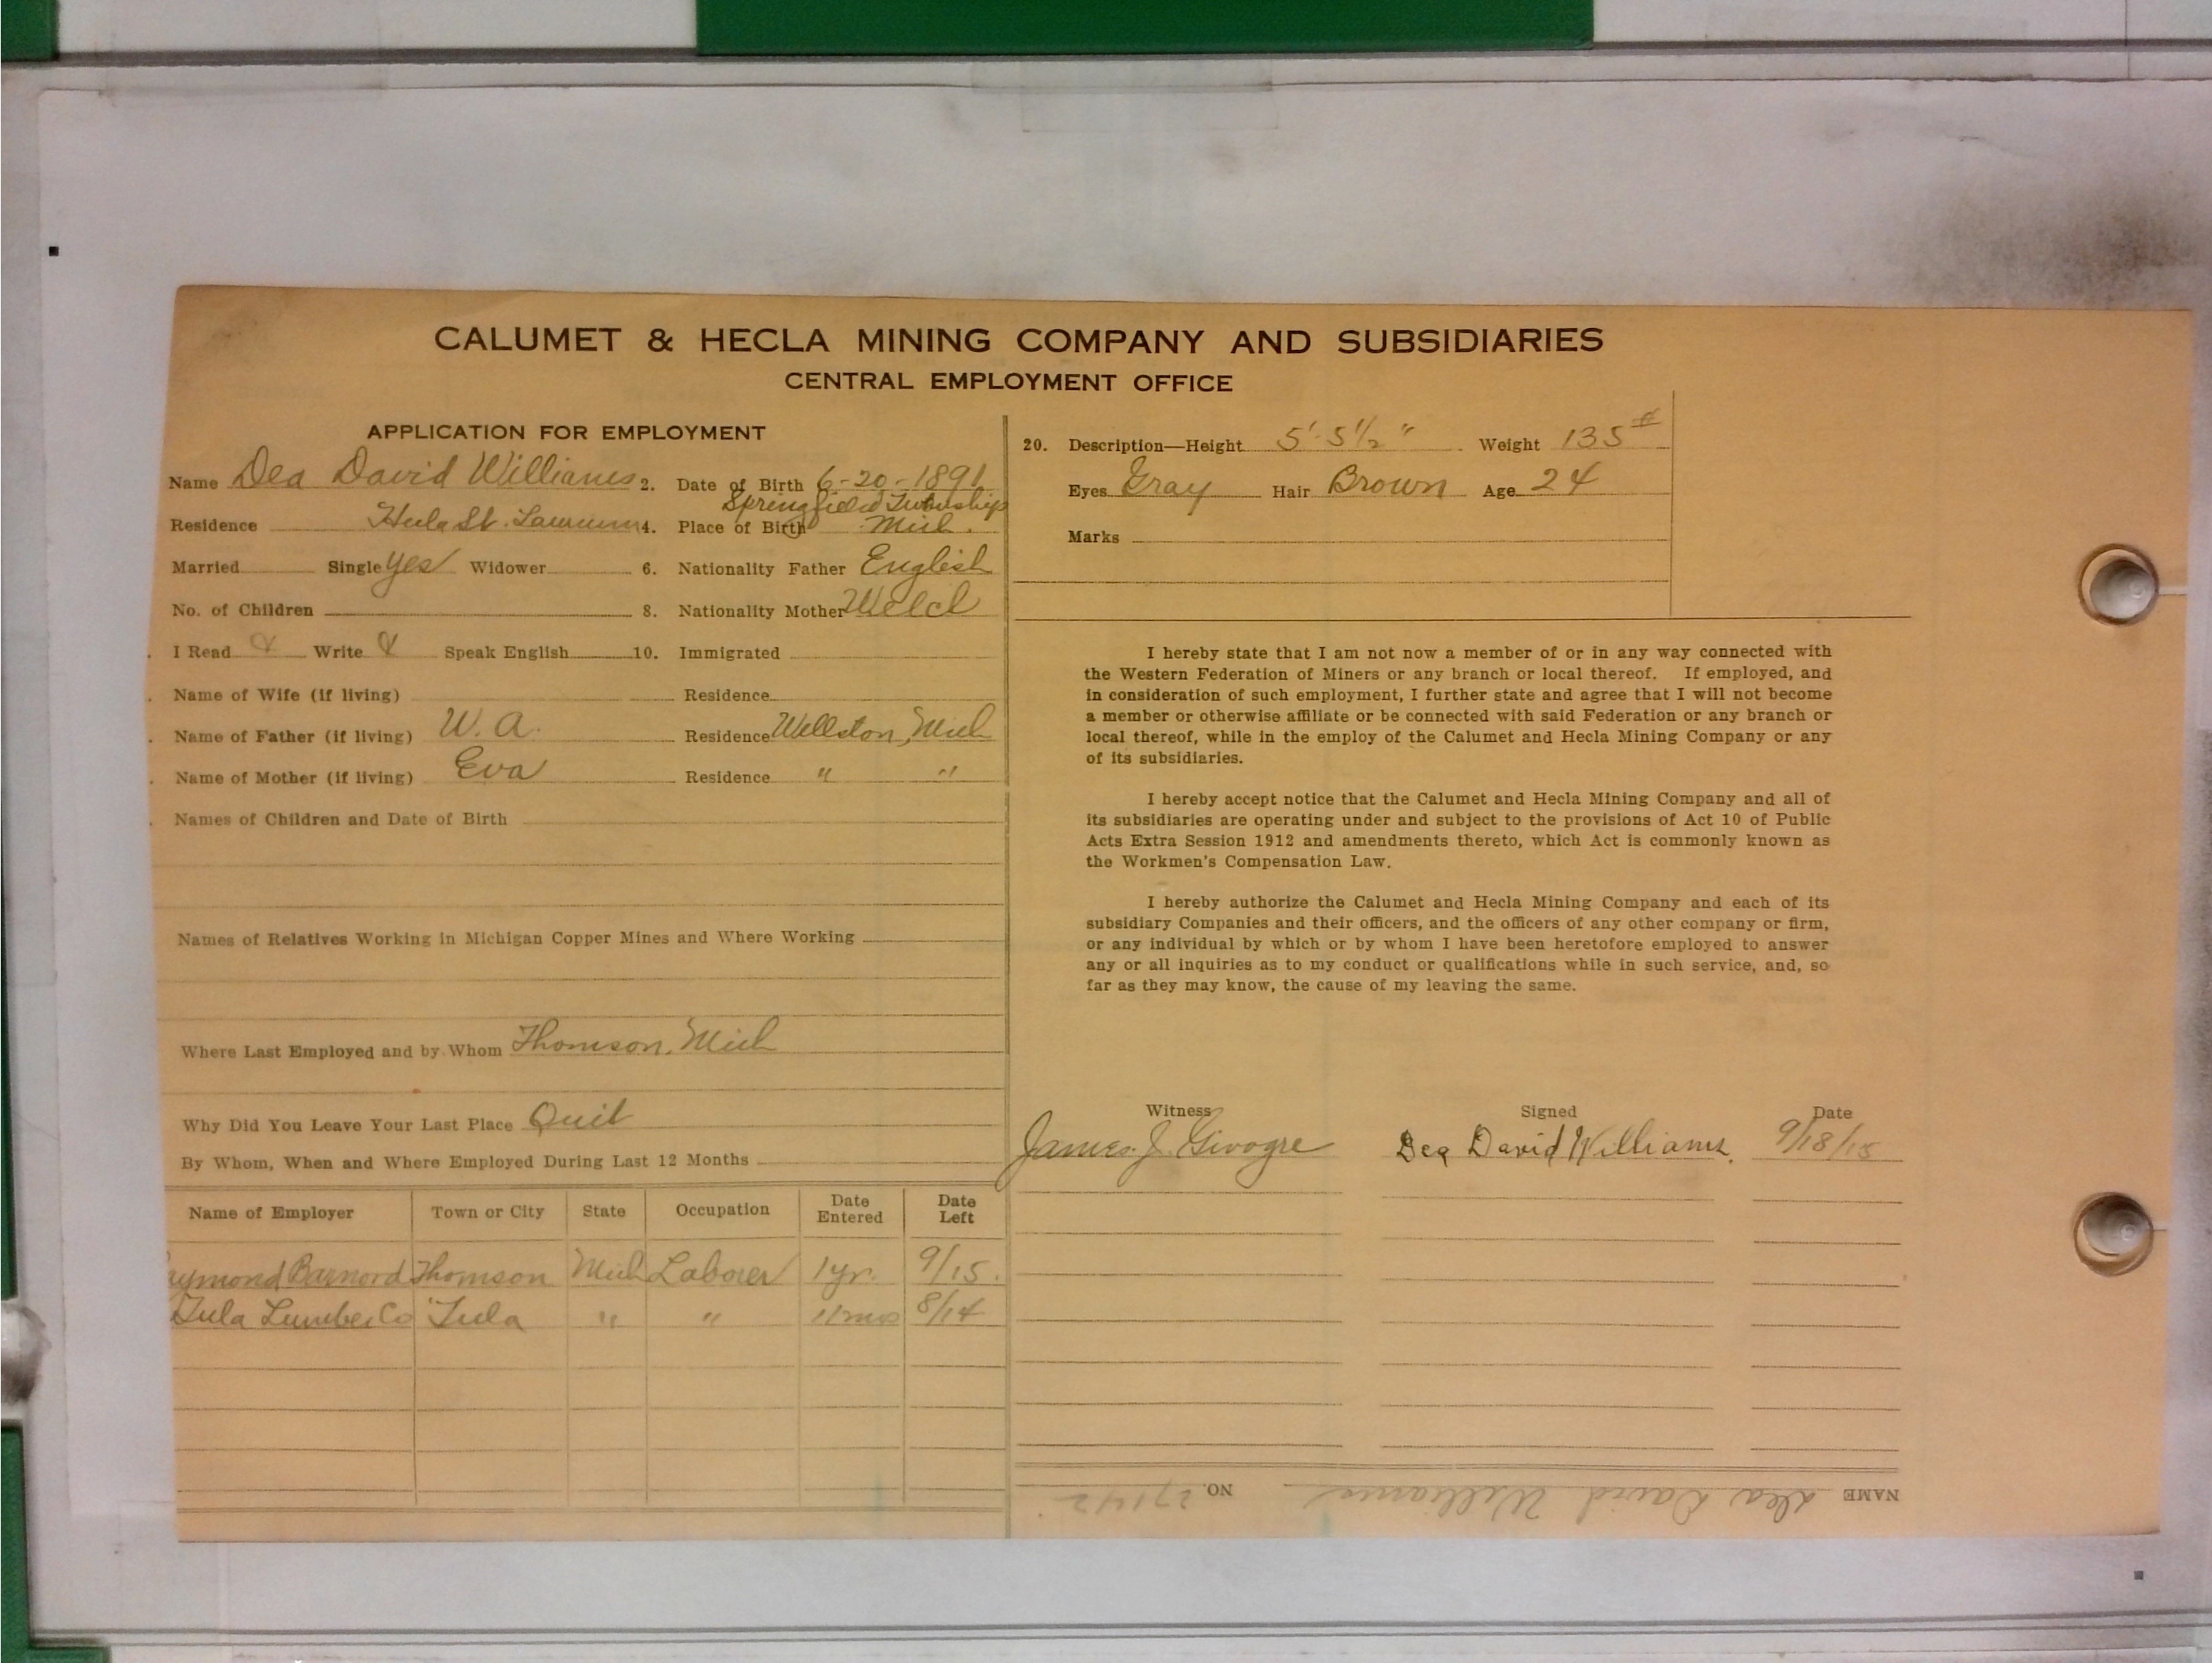 CALUMET & HECLA MINING COMPANY AND SUBSIDIARIES
CENTRAL EMPLOYMENT OFFICE
APPLICATION FOR EMPLOYMENT
Name Dea David Williams 2. Date of Birth 6-20-1891
Springfield Township
Residence St. 4. Place of Birth Mich.
Married Single yes Widower 6. Nationality Father English
No. of Children 8. Nationality Mother Welch
I Read Write Speak English 10. Immigrated
Name of Wife (if living) Residence
Name of Father (if living) W. A. Residence Wellston, Mich
Name of Mother (if living) Eva Residence " "
Names of Children and Date of Birth
Names of Relatives Working in Michigan Copper Mines and Where Working
Where Last Employed and by Whom Thomson, Mich
Why Did You Leave Your Last Place Quit
By Whom, When and Where Employed During Last 12 Months
Name of Employer Town or City State Occupation Date Entered Date Left
aymond Barnord Thomson Mich Laborer 1 yr. 9/15.
Tula Lumber Co Tula " " 11 mos 8/14
20. Description—Height 5' 5 1/2 " Weight 135 #
Eyes Gray Hair Brown Age 24
Marks
I hereby state that I am not now a member of or in any way connected with
the Western Federation of Miners or any branch or local thereof. If employed, and
in consideration of such employment, I further state and agree that I will not become
a member or otherwise affiliate or be connected with said Federation or any branch or
local thereof, while in the employ of the Calumet and Hecla Mining Company or any
of its subsidiaries.
I hereby accept notice that the Calumet and Hecla Mining Company and all of
its subsidiaries are operating under and subject to the provisions of Act 10 of Public
Acts Extra Session 1912 and amendments thereto, which Act is commonly known as
the Workmen's Compensation Law.
I hereby authorize the Calumet and Hecla Mining Company and each of its
subsidiary Companies and their officers, and the officers of any other company or firm,
or any individual by which or by whom I have been heretofore employed to answer
any or all inquiries as to my conduct or qualifications while in such service, and, so
far as they may know, the cause of my leaving the same.
Witness Signed Date
James J. Givogre Dea David Williams. 9/18/15
NAME Dea David Williams NO. 27142